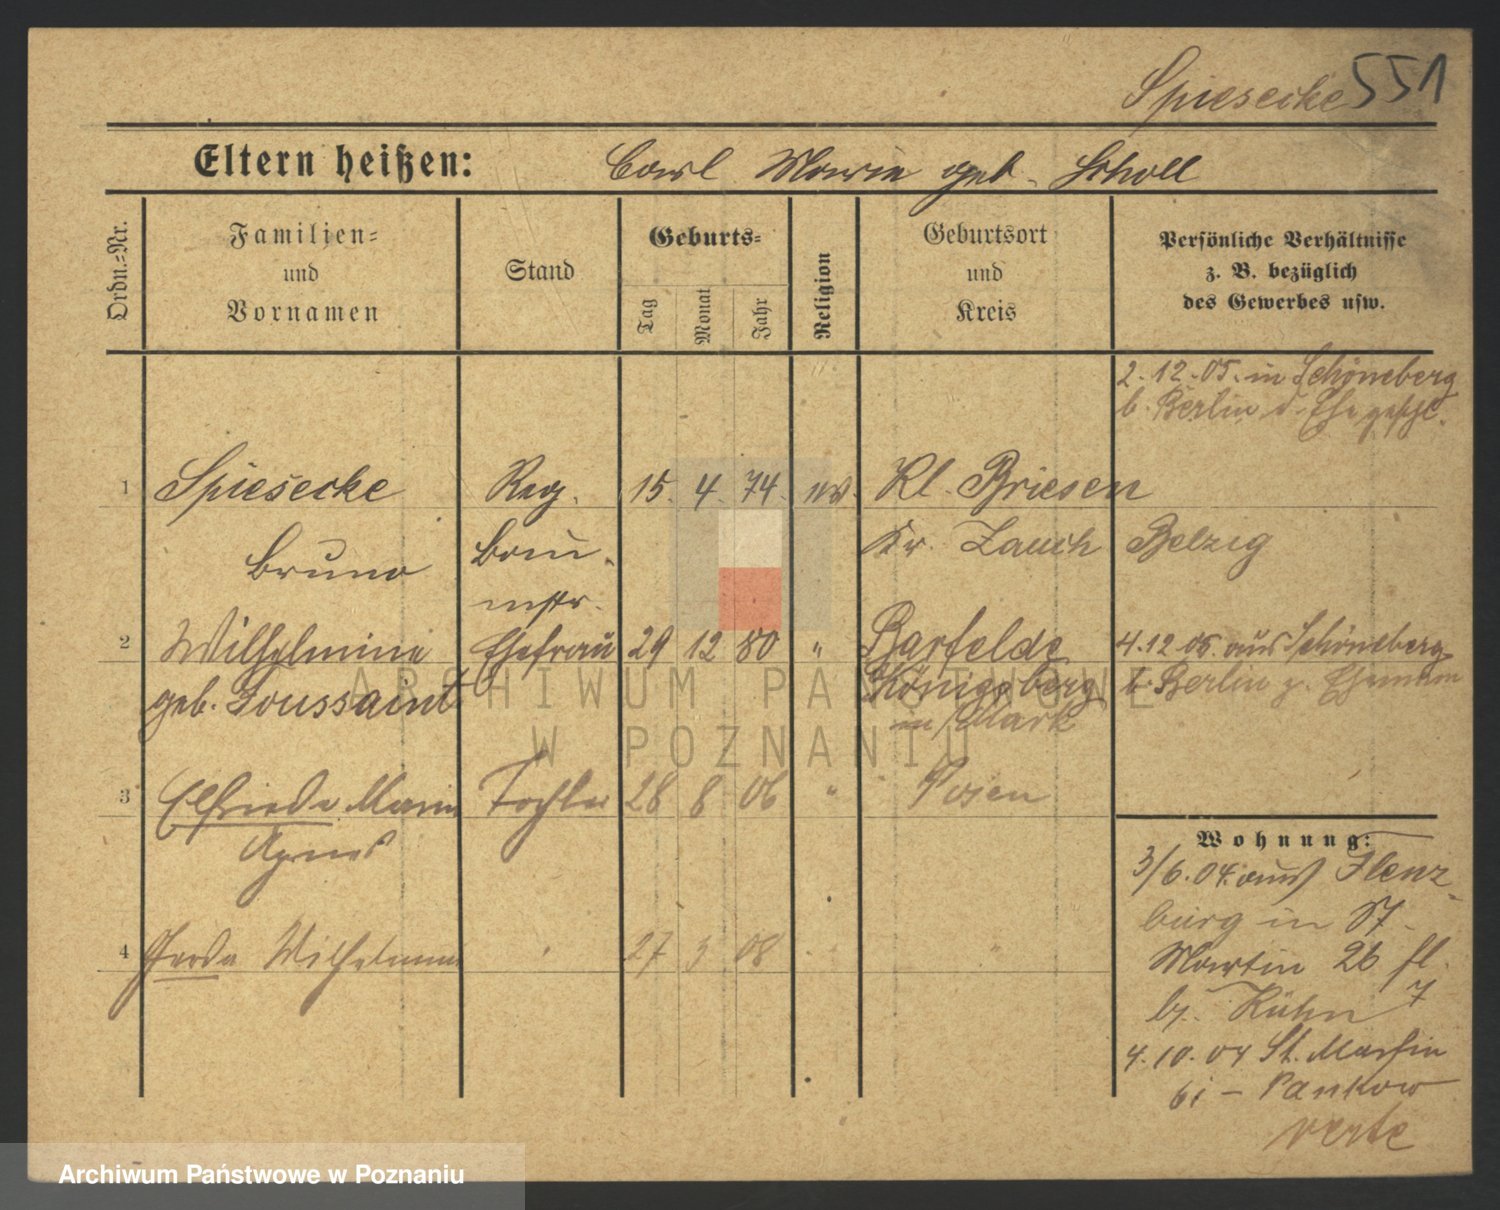 Spiesecke 551
Eltern heißen: Carl Marie geb. Scholl
Ordn.-Nr.
Familien-
und
Vornamen
Stand
Geburts-
Tag
Monat
Jahr
Religion
Geburtsort
und
Kreis
Persönliche Verhältnisse
z. B. bezüglich
des Gewerbes usw.
2.12.05. in Schöneberg
b. Berlin d. Ehe geschl.
1 Spiesecke Reg. 15. 4. 74. ev. Kl. Briesen
Bruno Bau- Kr. Zauch Belzig
mstr.
2 Wilhelmine Ehefrau 29 12 80 " Barfelde 4.12.05. aus Schöneberg
geb. Toussaint Königsberg b. Berlin z. Ehemann
in/Mark
3 Elfriede Marie Tochter 28 8 06 " Posen
Agnes
4 Gerda Wilhelmine " 27 3 08 "
Wohnung:
3/6.04. aus Flens-
burg in St.
Martin 26 fl.
bj. Kühn 7
4.10.04 St. Martin
61 - Pankow
verte
ARCHIWUM PAŃSTWOWE
W POZNANIU
Archiwum Państwowe w Poznaniu